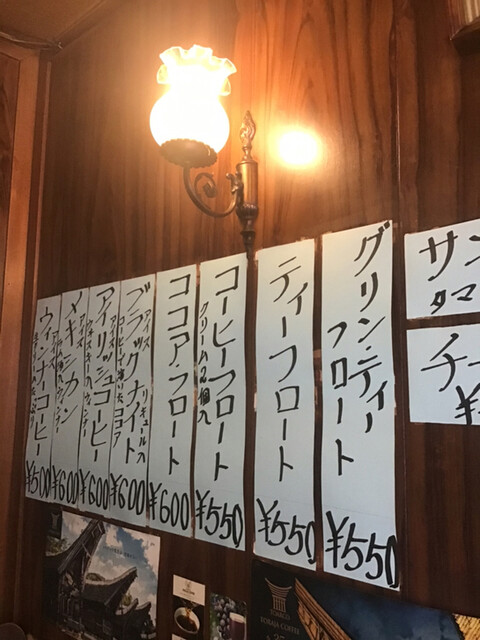 グリンティー
フロート
¥550
ティーフロート
¥550
コーヒーフロート
クリーム2個入
¥550
ココア・フロート
¥600
ブラックナイト
アイス
リキュール入
コーヒーで割ったココア
¥600
アイリッシュコーヒー
アイス
ウイスキー入
¥600
メキシカン
アイス
¥600
ウィンナーコーヒー
アイス
¥500
サン
タマ
チー
¥
TORAJA COFFEE